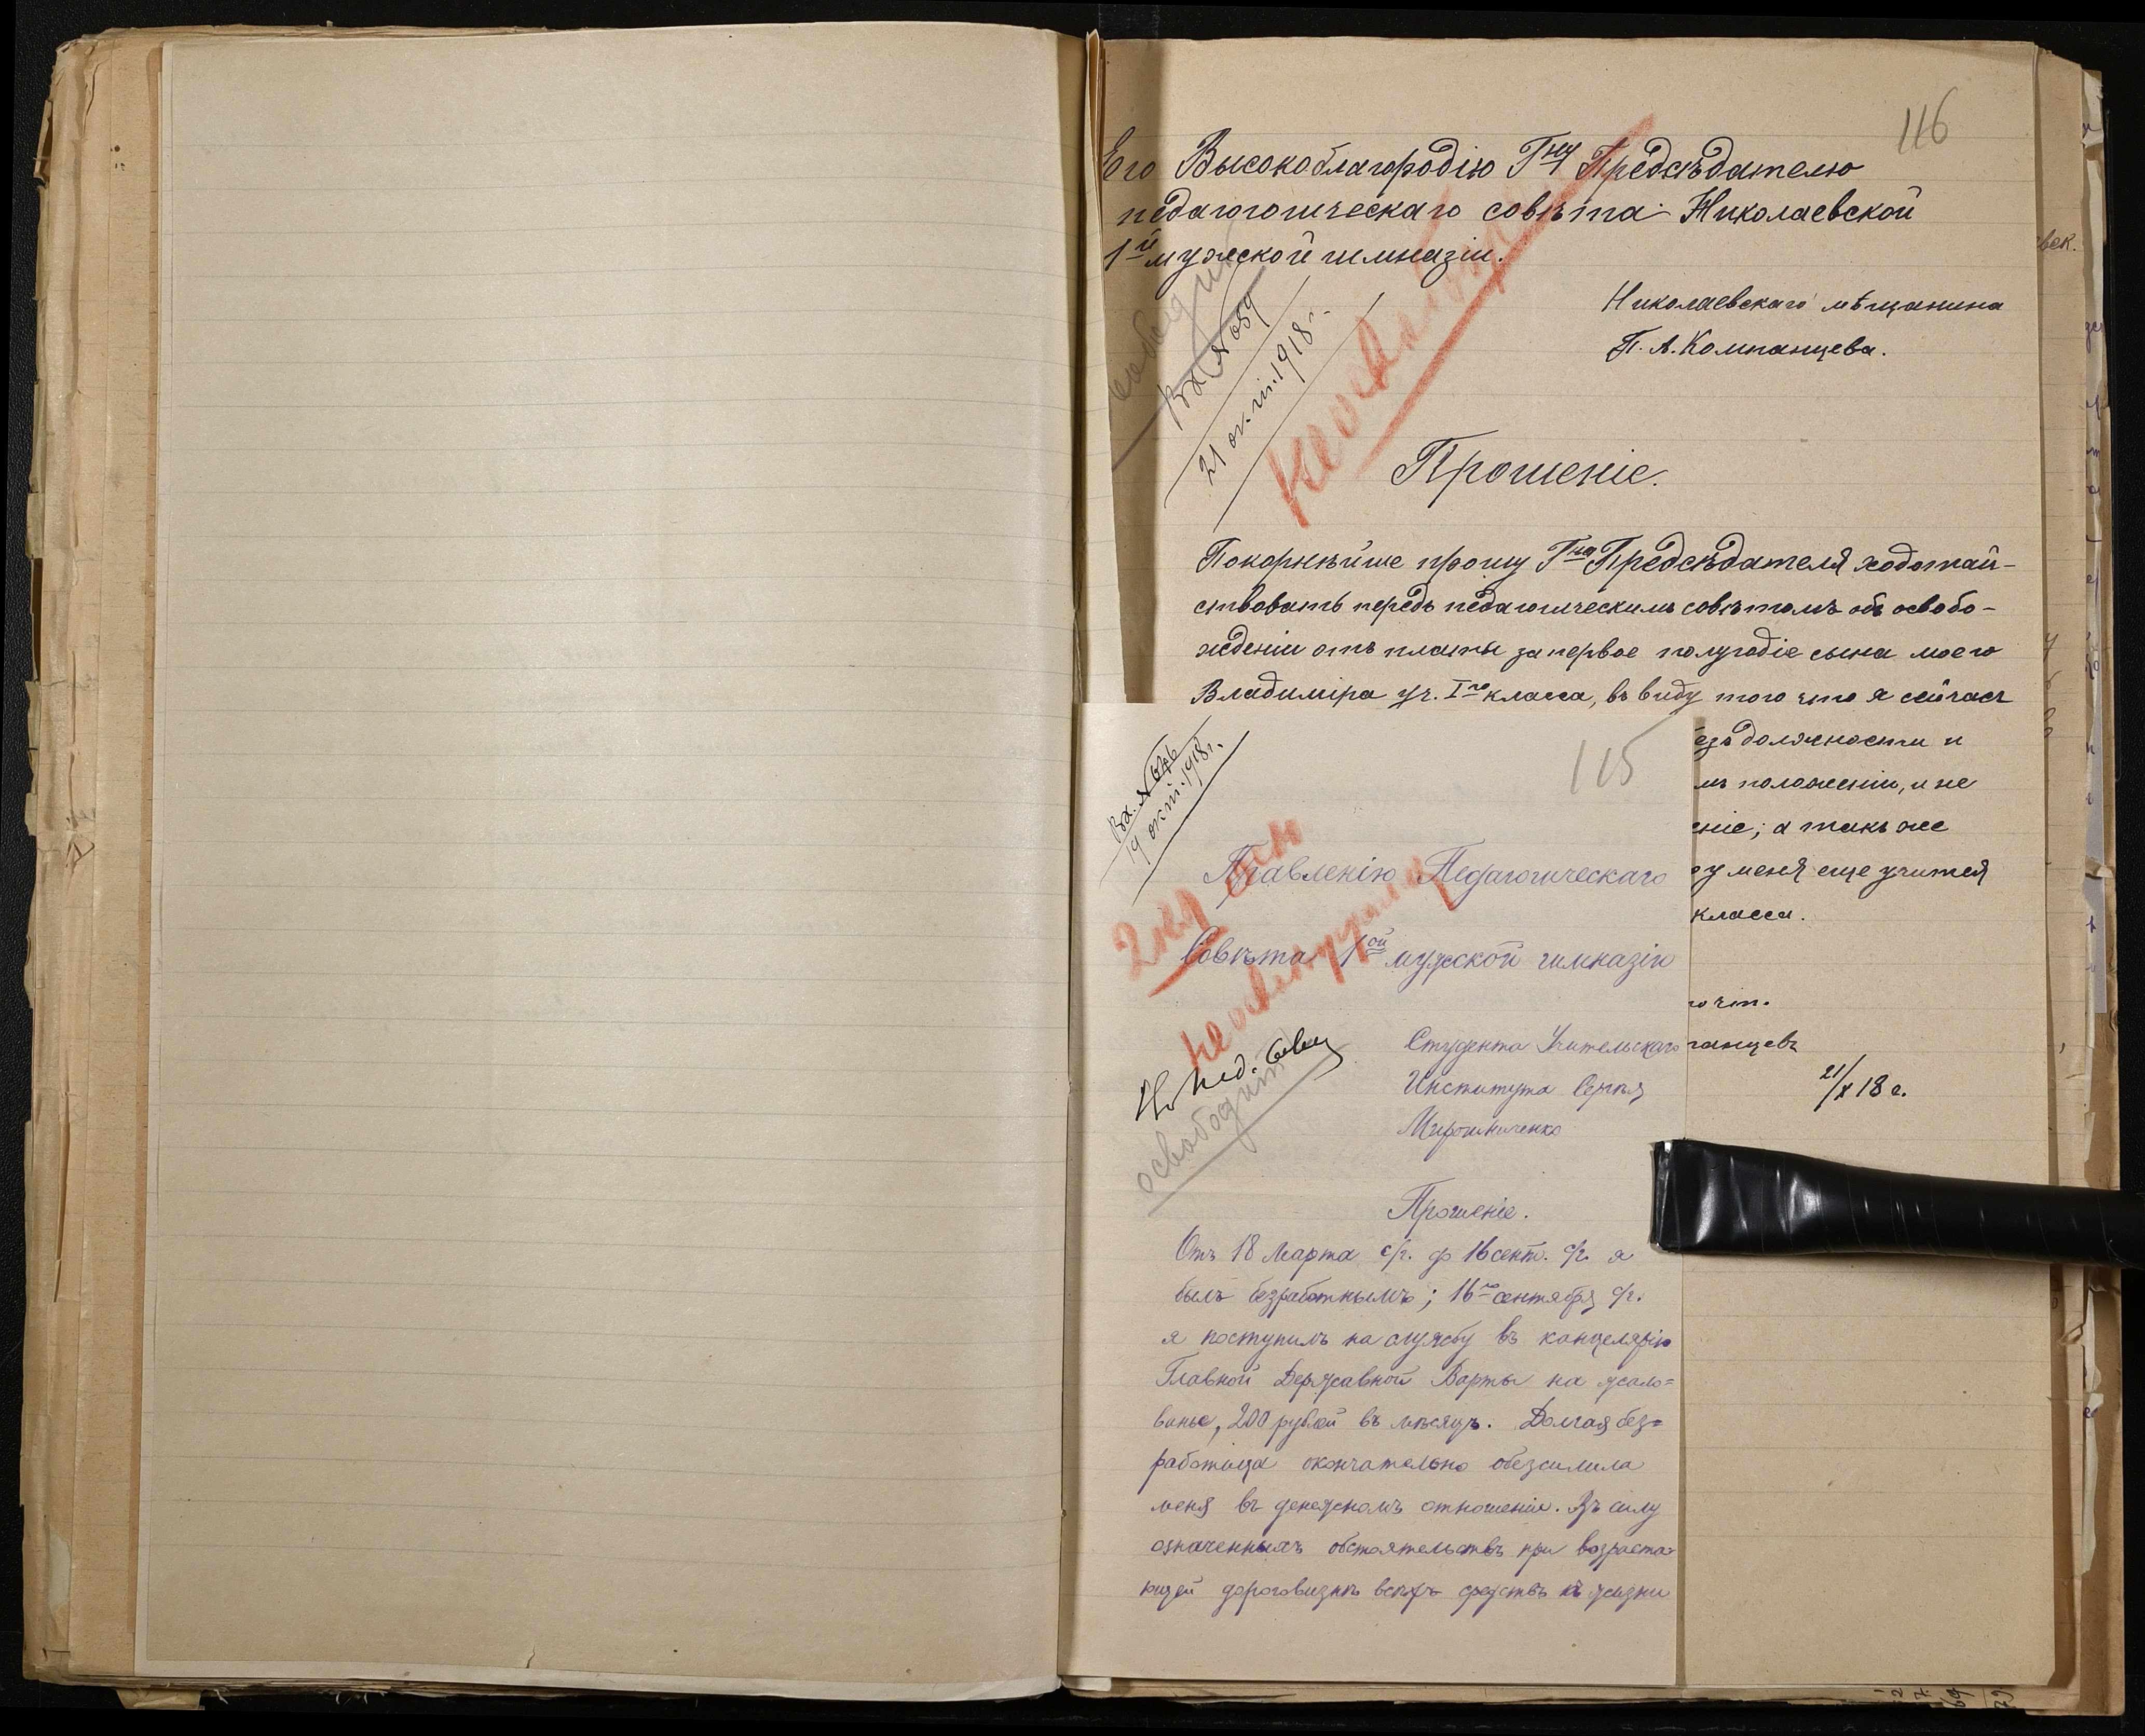 116
Его Высокоблагородію Гну Предсѣдателю
педагогическаго совѣта Николаевской
1й мужской гимназіи.
Николаевскаго мѣщанина
П. А. Компанцева.
21 окт. 1918 г.
Прошеніе.
Покорнѣйше прошу Гна Предсѣдателя ходатай-
ствовать передъ педагогическимъ совѣтомъ объ освобо-
жденіи отъ платы за первое полугодіе сына моего
Владиміра уч. Iго класса, въ виду того что я сейчасъ
езъ должности и
мъ положеніи, и не
еніе; а также
у меня еще учится
класса.
анцевъ
21/X 18 г.
115
Вх. №
19 окт. 1918 г.
Правленію Педагогическаго
Совѣта 1ой мужской гимназію
Студента Учительскаго
Института Сергѣя
Мирошниченко
освободить
Прошеніе.
Отъ 18 Марта с/г. до 16 сент. с/г. я
былъ безработнымъ; 16го сентября с/г.
я поступилъ на службу въ канцелярію
Главной Державной Варты на жало=
ванье, 200 рублей въ мѣсяцъ. Долгая без=
работица окончательно обезсилила
меня въ денежномъ отношеніи. Въ силу
означенныхъ обстоятельствъ при возраста=
ющей дороговизнѣ всѣхъ средствъ къ жизни